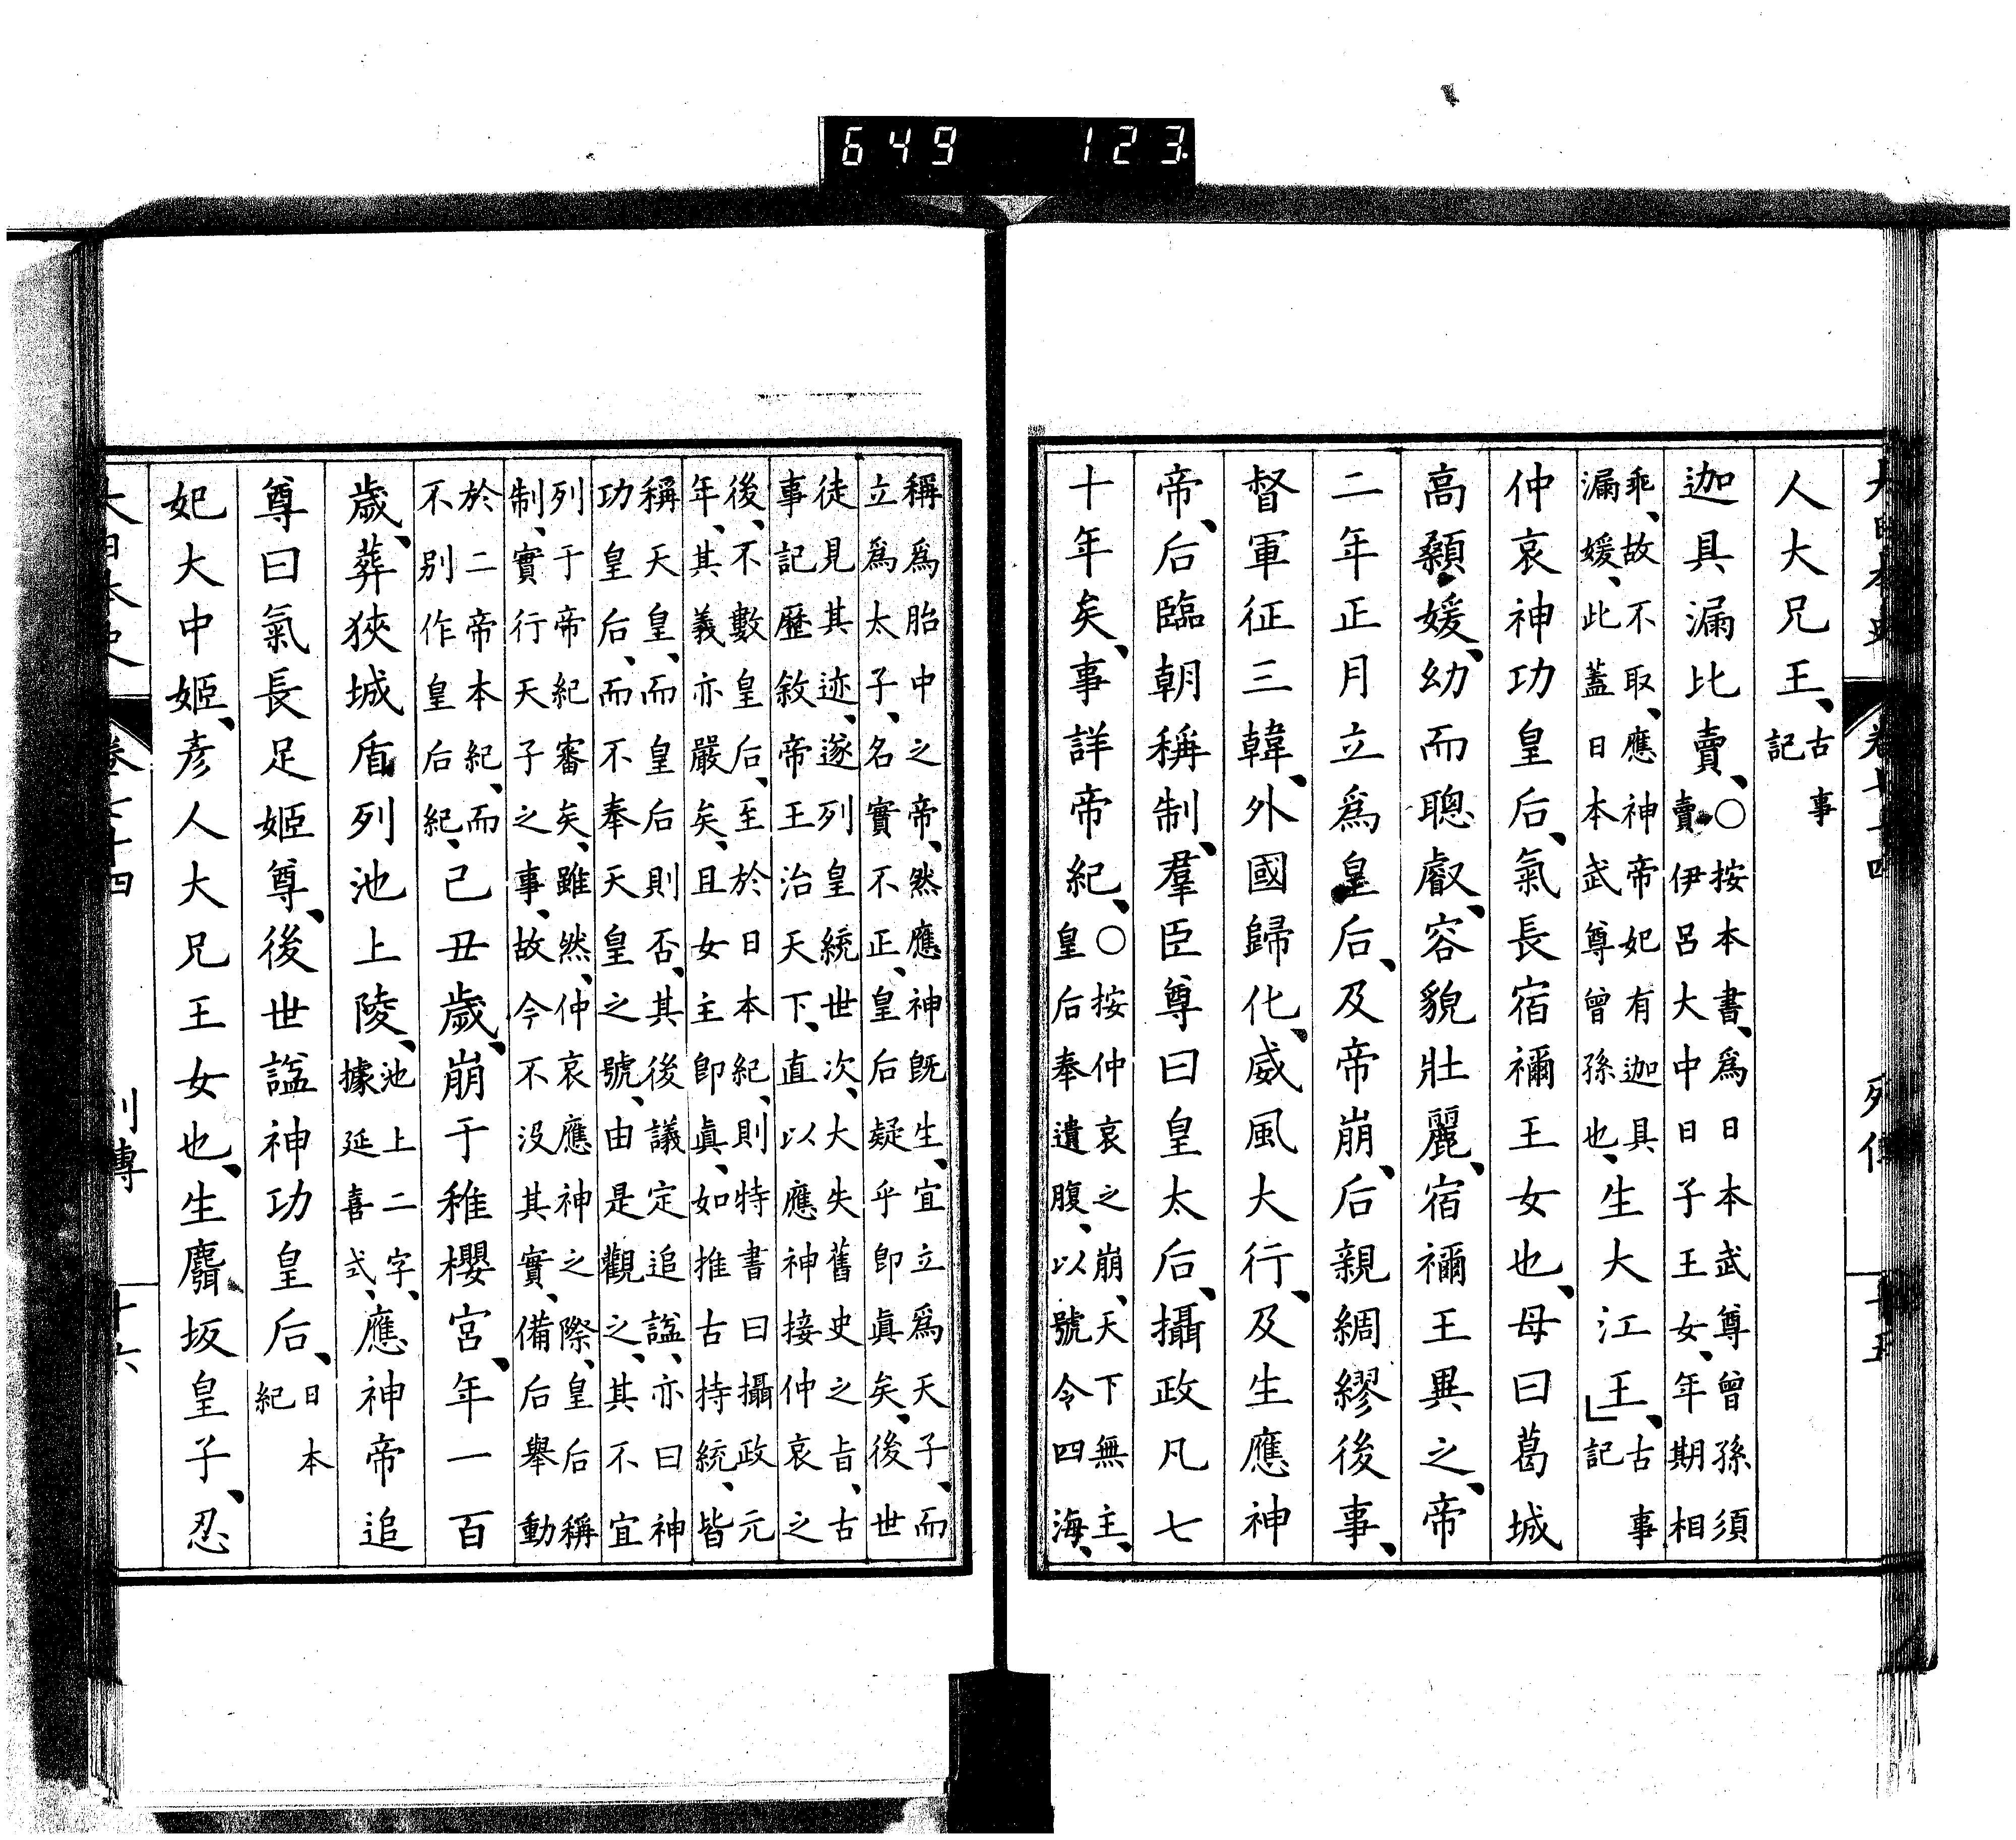 大日本史 卷七十四 列傳 十五
人大兄王、古事記
迦具漏比賣、○按本書、爲日本武尊曾孫須賣伊呂大中日子王女、年期相
乖、故不取、應神帝妃有迦具漏媛、此蓋日本武尊曾孫也、生大江王」、古事記
仲哀神功皇后、氣長宿禰王女也、母曰葛城
高顙媛、幼而聰叡、容貌壯麗、宿禰王異之、帝
二年正月立爲皇后、及帝崩、后親綢繆後事、
督軍征三韓、外國歸化、威風大行、及生應神
帝、后臨朝稱制、羣臣尊曰皇太后、攝政凡七
十年矣、事詳帝紀、○按仲哀之崩、天下無主、皇后奉遺腹、以號令四海、
稱爲胎中之帝、然應神既生、宜立爲天子、而立爲太子、名實不正、皇后疑乎卽眞矣、後世
徒見其迹、遂列皇統世次、大失舊史之旨、古事記歷敘帝王治天下、直以應神接仲哀之
後、不數皇后、至於日本紀、則特書曰攝政元年、其義亦嚴矣、且女主卽眞、如推古持統、皆
稱天皇、而皇后則否、其後議定追諡、亦曰神功皇后、而不奉天皇之號、由是觀之、其不宜
列于帝紀審矣、雖然、仲哀應神之際、皇后稱制、實行天子之事、故今不没其實、備后舉動
於二帝本紀、而不別作皇后紀、己丑歲、崩于稚櫻宮、年一百
歲、葬狹城盾列池上陵、池上二字、據延喜式、應神帝追
尊曰氣長足姬尊、後世諡神功皇后、日本紀
妃大中姬、彦人大兄王女也、生麛坂皇子、忍
大日本史 卷七十四 列傳 十六
649 123